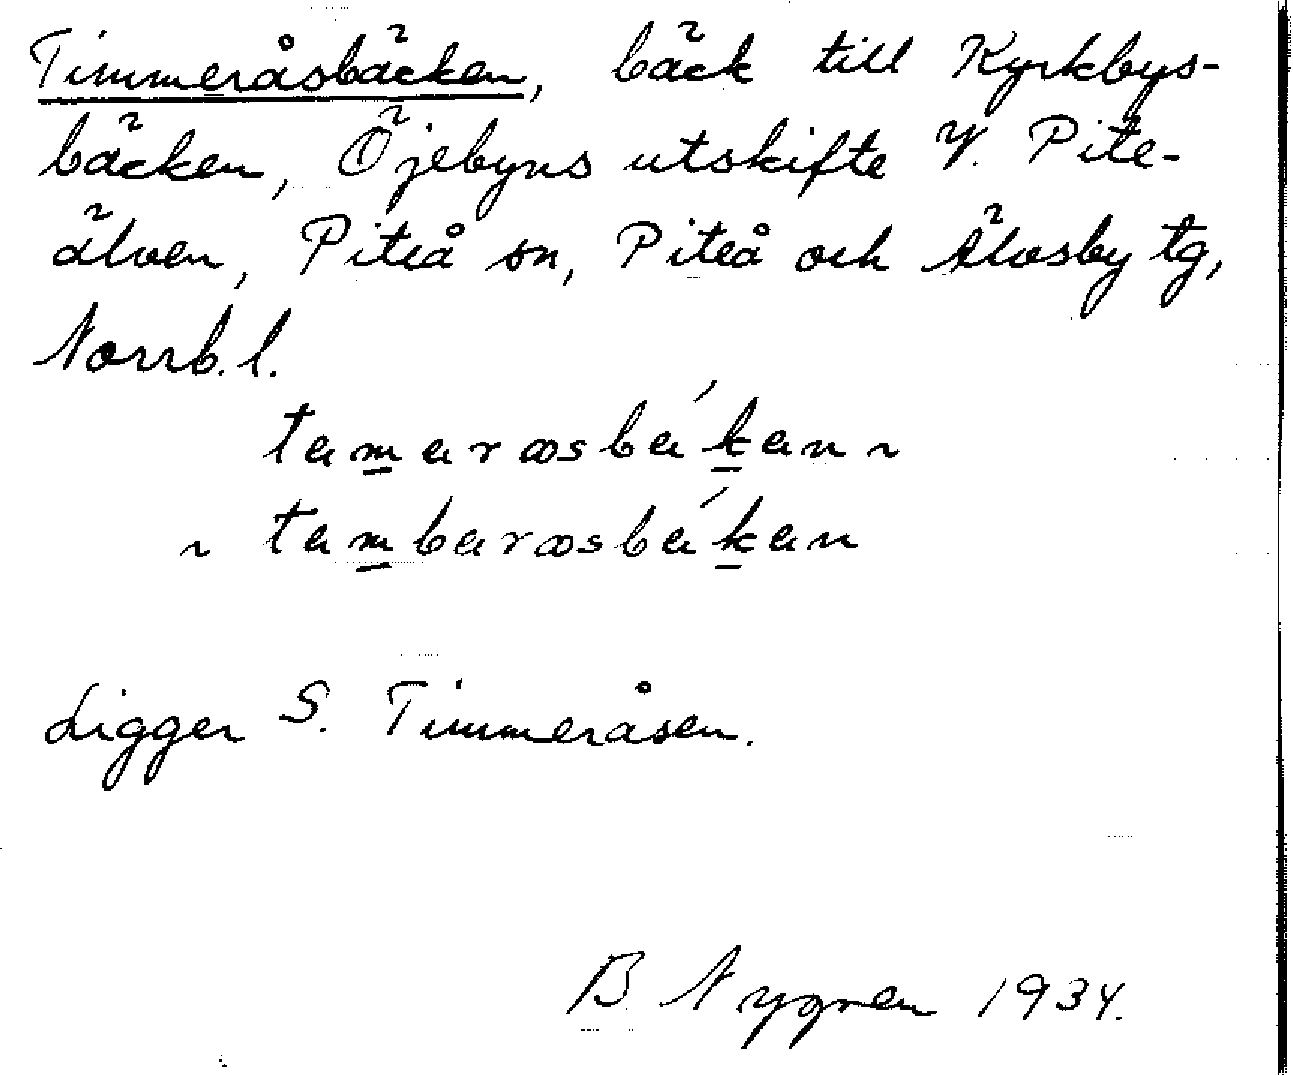 Timmeråsbäcken, bäck till Kyrkbys-
bäcken, Öjebyns utskifte V. Pite-
älven, Piteå sn, Piteå och Älvsby tg,
Norrb. l.
tamaræsbákan ~
~ tambaræsbákan
Ligger S. Timmeråsen.
B. Nygren 1934.